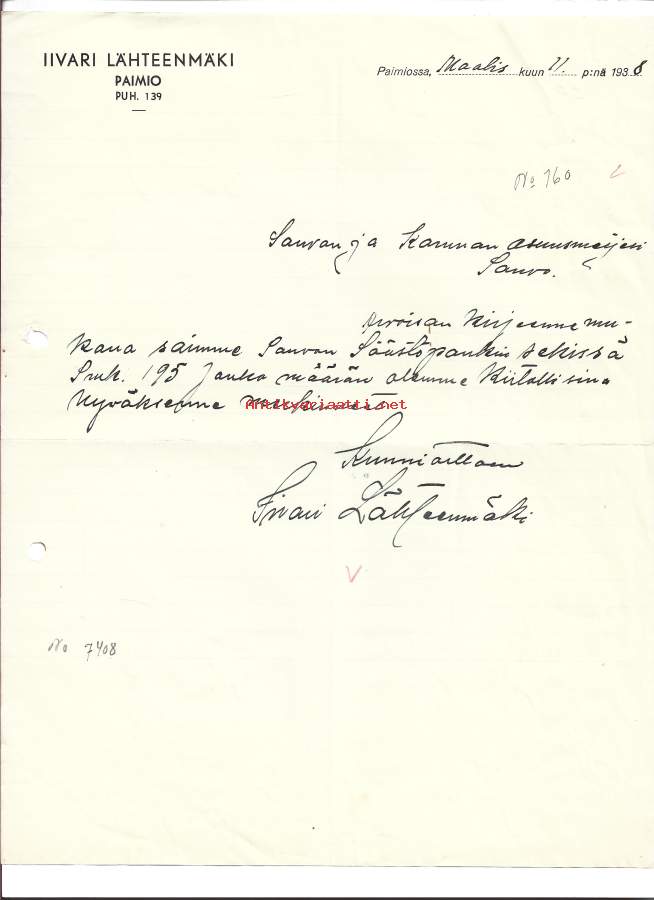 IIVARI LÄHTEENMÄKI
PAIMIO
PUH. 139
Paimiossa, Maalis kuun 11 p:nä 1938
No 760
Sauvon ja Karunan Osuusmeijeri
Sauvo.
Arvoisan kirjeenne mu-
kana saimme Sauvon Säästöpankin sekissä
Smk. 195 jonka määrän olemme kiitollisina
hyväksenne merkinneet
antikvariaatti.net
Kunnioittaen
Iivari Lähteenmäki
No 7408